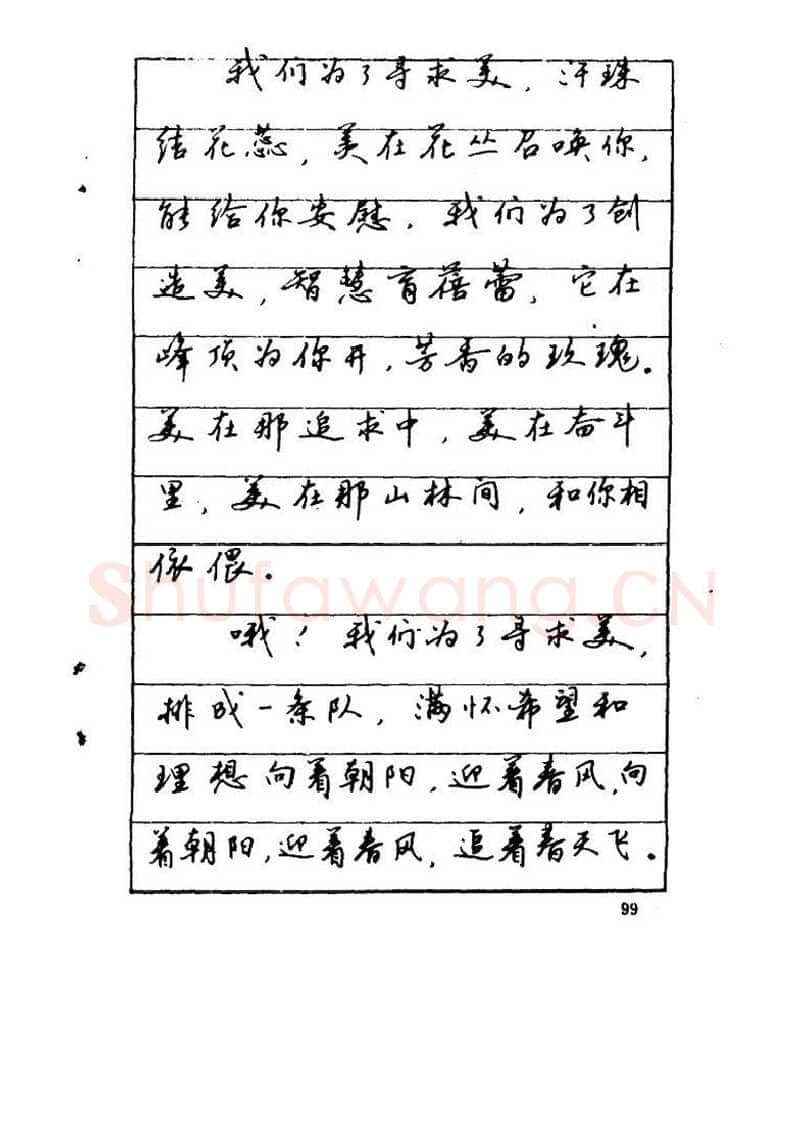 我们为了寻求美，汗珠
结花蕊，美在花丛召唤你，
能给你安慰．我们为了创
造美，智慧育蓓蕾，它在
峰顶为你开，芳香的玫瑰。
美在那追求中，美在奋斗
里，美在那山林间，和你相
依偎。
哦！我们为了寻求美，
排成一条队，满怀希望和
理想向着朝阳，迎着春风，向
着朝阳，迎着春风，追着春天飞。
Shufawang.CN
99